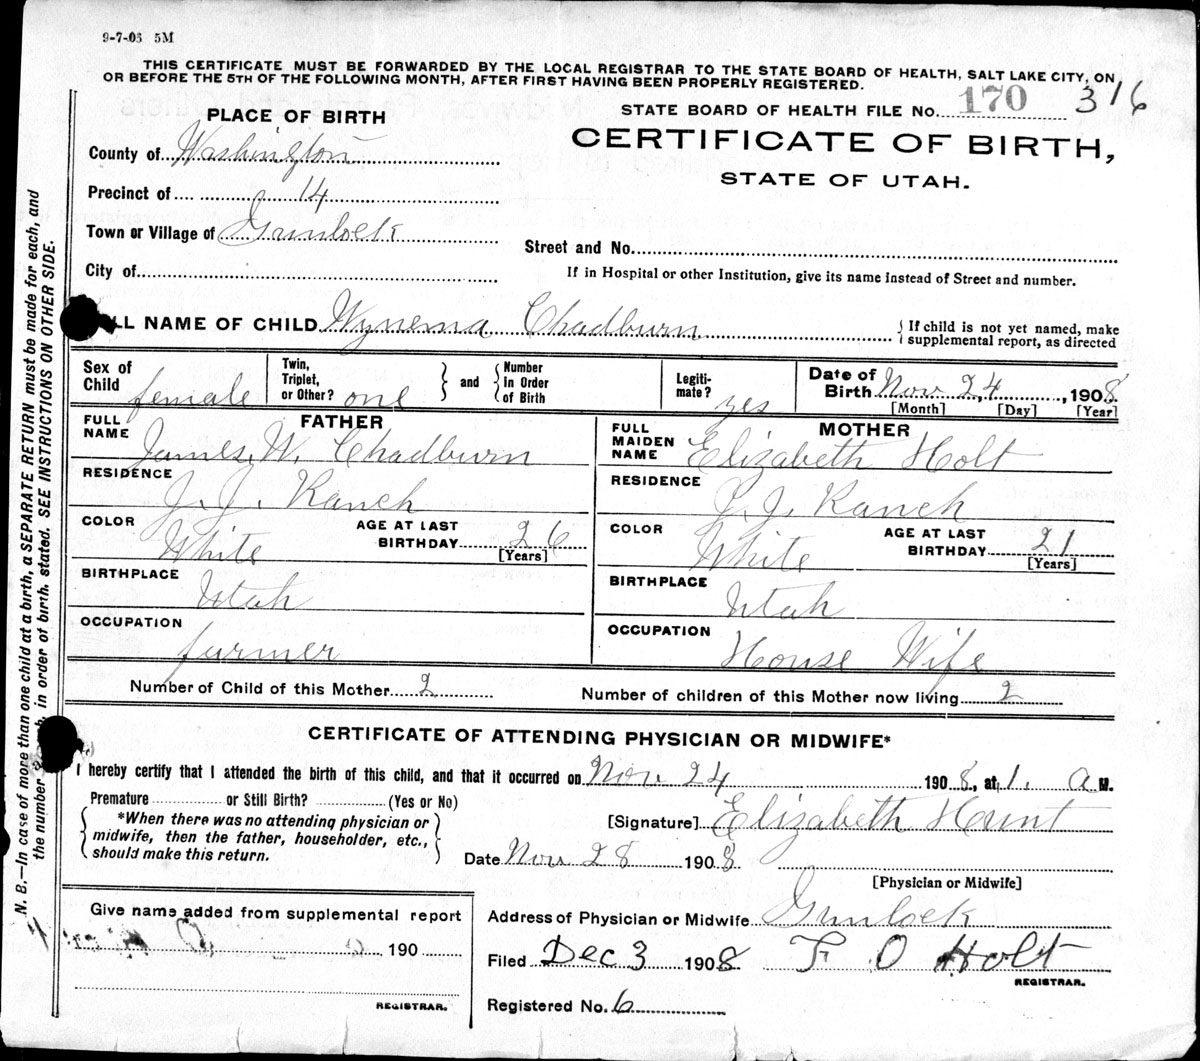 9-7-08 5M
THIS CERTIFICATE MUST BE FORWARDED BY THE LOCAL REGISTRAR TO THE STATE BOARD OF HEALTH, SALT LAKE CITY, ON
OR BEFORE THE 5TH OF THE FOLLOWING MONTH, AFTER FIRST HAVING BEEN PROPERLY REGISTERED.
STATE BOARD OF HEALTH FILE No. 170 316
CERTIFICATE OF BIRTH,
STATE OF UTAH.
PLACE OF BIRTH
County of Washington
Precinct of 14
Town or Village of Gunlock
City of
Street and No.
If in Hospital or other Institution, give its name instead of Street and number.
LL NAME OF CHILD Wynema Chadburn
If child is not yet named, make
supplemental report, as directed
Sex of Child female
Twin, Triplet, or Other? one
and
Number In Order of Birth
Legiti-mate? yes
Date of Birth Nov 24, 1908
[Month] [Day] [Year]
FATHER
FULL NAME James W. Chadburn
RESIDENCE J. J. Ranch
COLOR White
AGE AT LAST BIRTHDAY 26
[Years]
BIRTHPLACE Utah
OCCUPATION farmer
MOTHER
FULL MAIDEN NAME Elizabeth Holt
RESIDENCE J. J. Ranch
COLOR White
AGE AT LAST BIRTHDAY 21
[Years]
BIRTHPLACE Utah
OCCUPATION House Wife
Number of Child of this Mother 2
Number of children of this Mother now living 2
CERTIFICATE OF ATTENDING PHYSICIAN OR MIDWIFE*
I hereby certify that I attended the birth of this child, and that it occurred on Nov 24 1908, at 1. a M.
Premature or Still Birth? (Yes or No)
*When there was no attending physician or
midwife, then the father, householder, etc.,
should make this return.
[Signature] Elizabeth Hunt
Date Nov 28 1908
[Physician or Midwife]
Give name added from supplemental report
190
REGISTRAR.
Address of Physician or Midwife Gunlock
Filed Dec 3 1908 F O Holt
REGISTRAR.
Registered No. 6
N. B.—In case of more than one child at a birth, a SEPARATE RETURN must be made for each, and
the number in order of birth, stated. SEE INSTRUCTIONS ON OTHER SIDE.